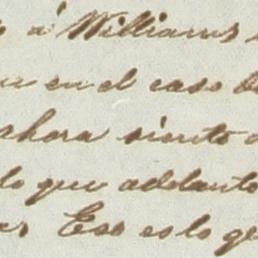 á Williams
en el caso
ahora siento
lo que adelanto
Eso es lo